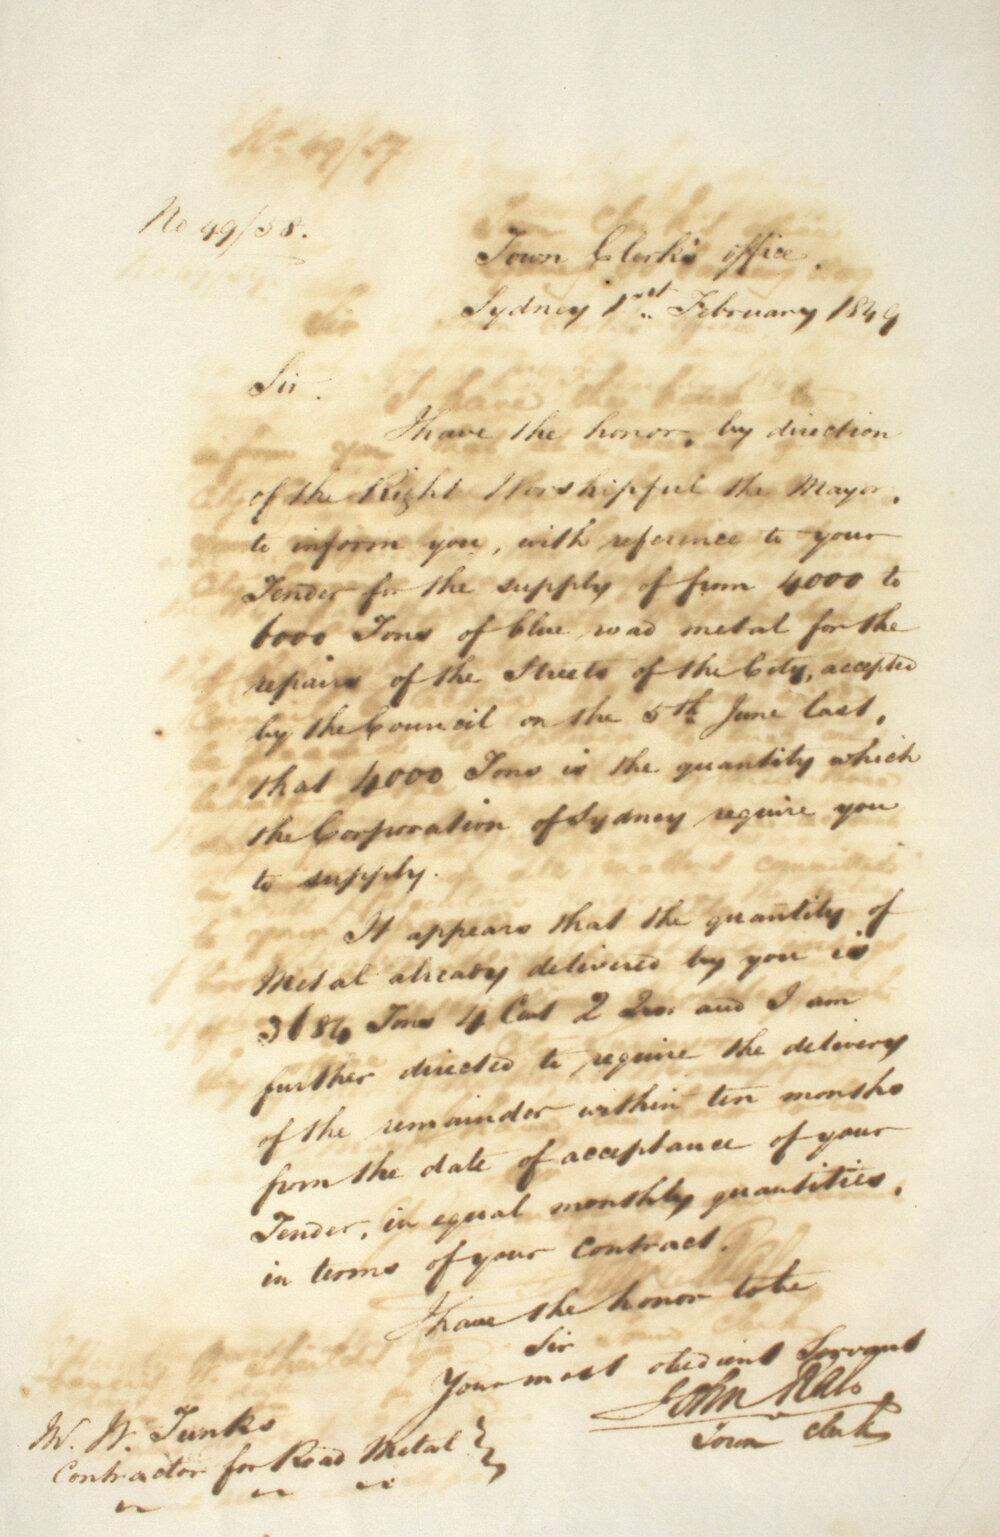 No 49/57
No 49/58.
Town Clerk's office.
Sydney 1st February 1849
Sir.
I have the honor, by direction
of the Right Worshipful the Mayor,
to inform you, with reference to your
Tender for the supply of from 4000 to
6000 Tons of blue road metal for the
repairs of the Streets of the City, accepted
by the Council on the 5th June last,
that 4000 Tons is the quantity which
the Corporation of Sydney require you
to supply.
It appears that the quantity of
Metal already delivered by you is
3684 Tons 4 Cwt 2 Qrs. and I am
further directed to require the delivery
of the remainder within ten months
from the date of acceptance of your
Tender, in equal monthly quantities,
in terms of your contract.
I have the honor to be
Sir
Your most obedient Servant
John Rae
Town Clerk
W. Tunks
Contractor for Road Metal